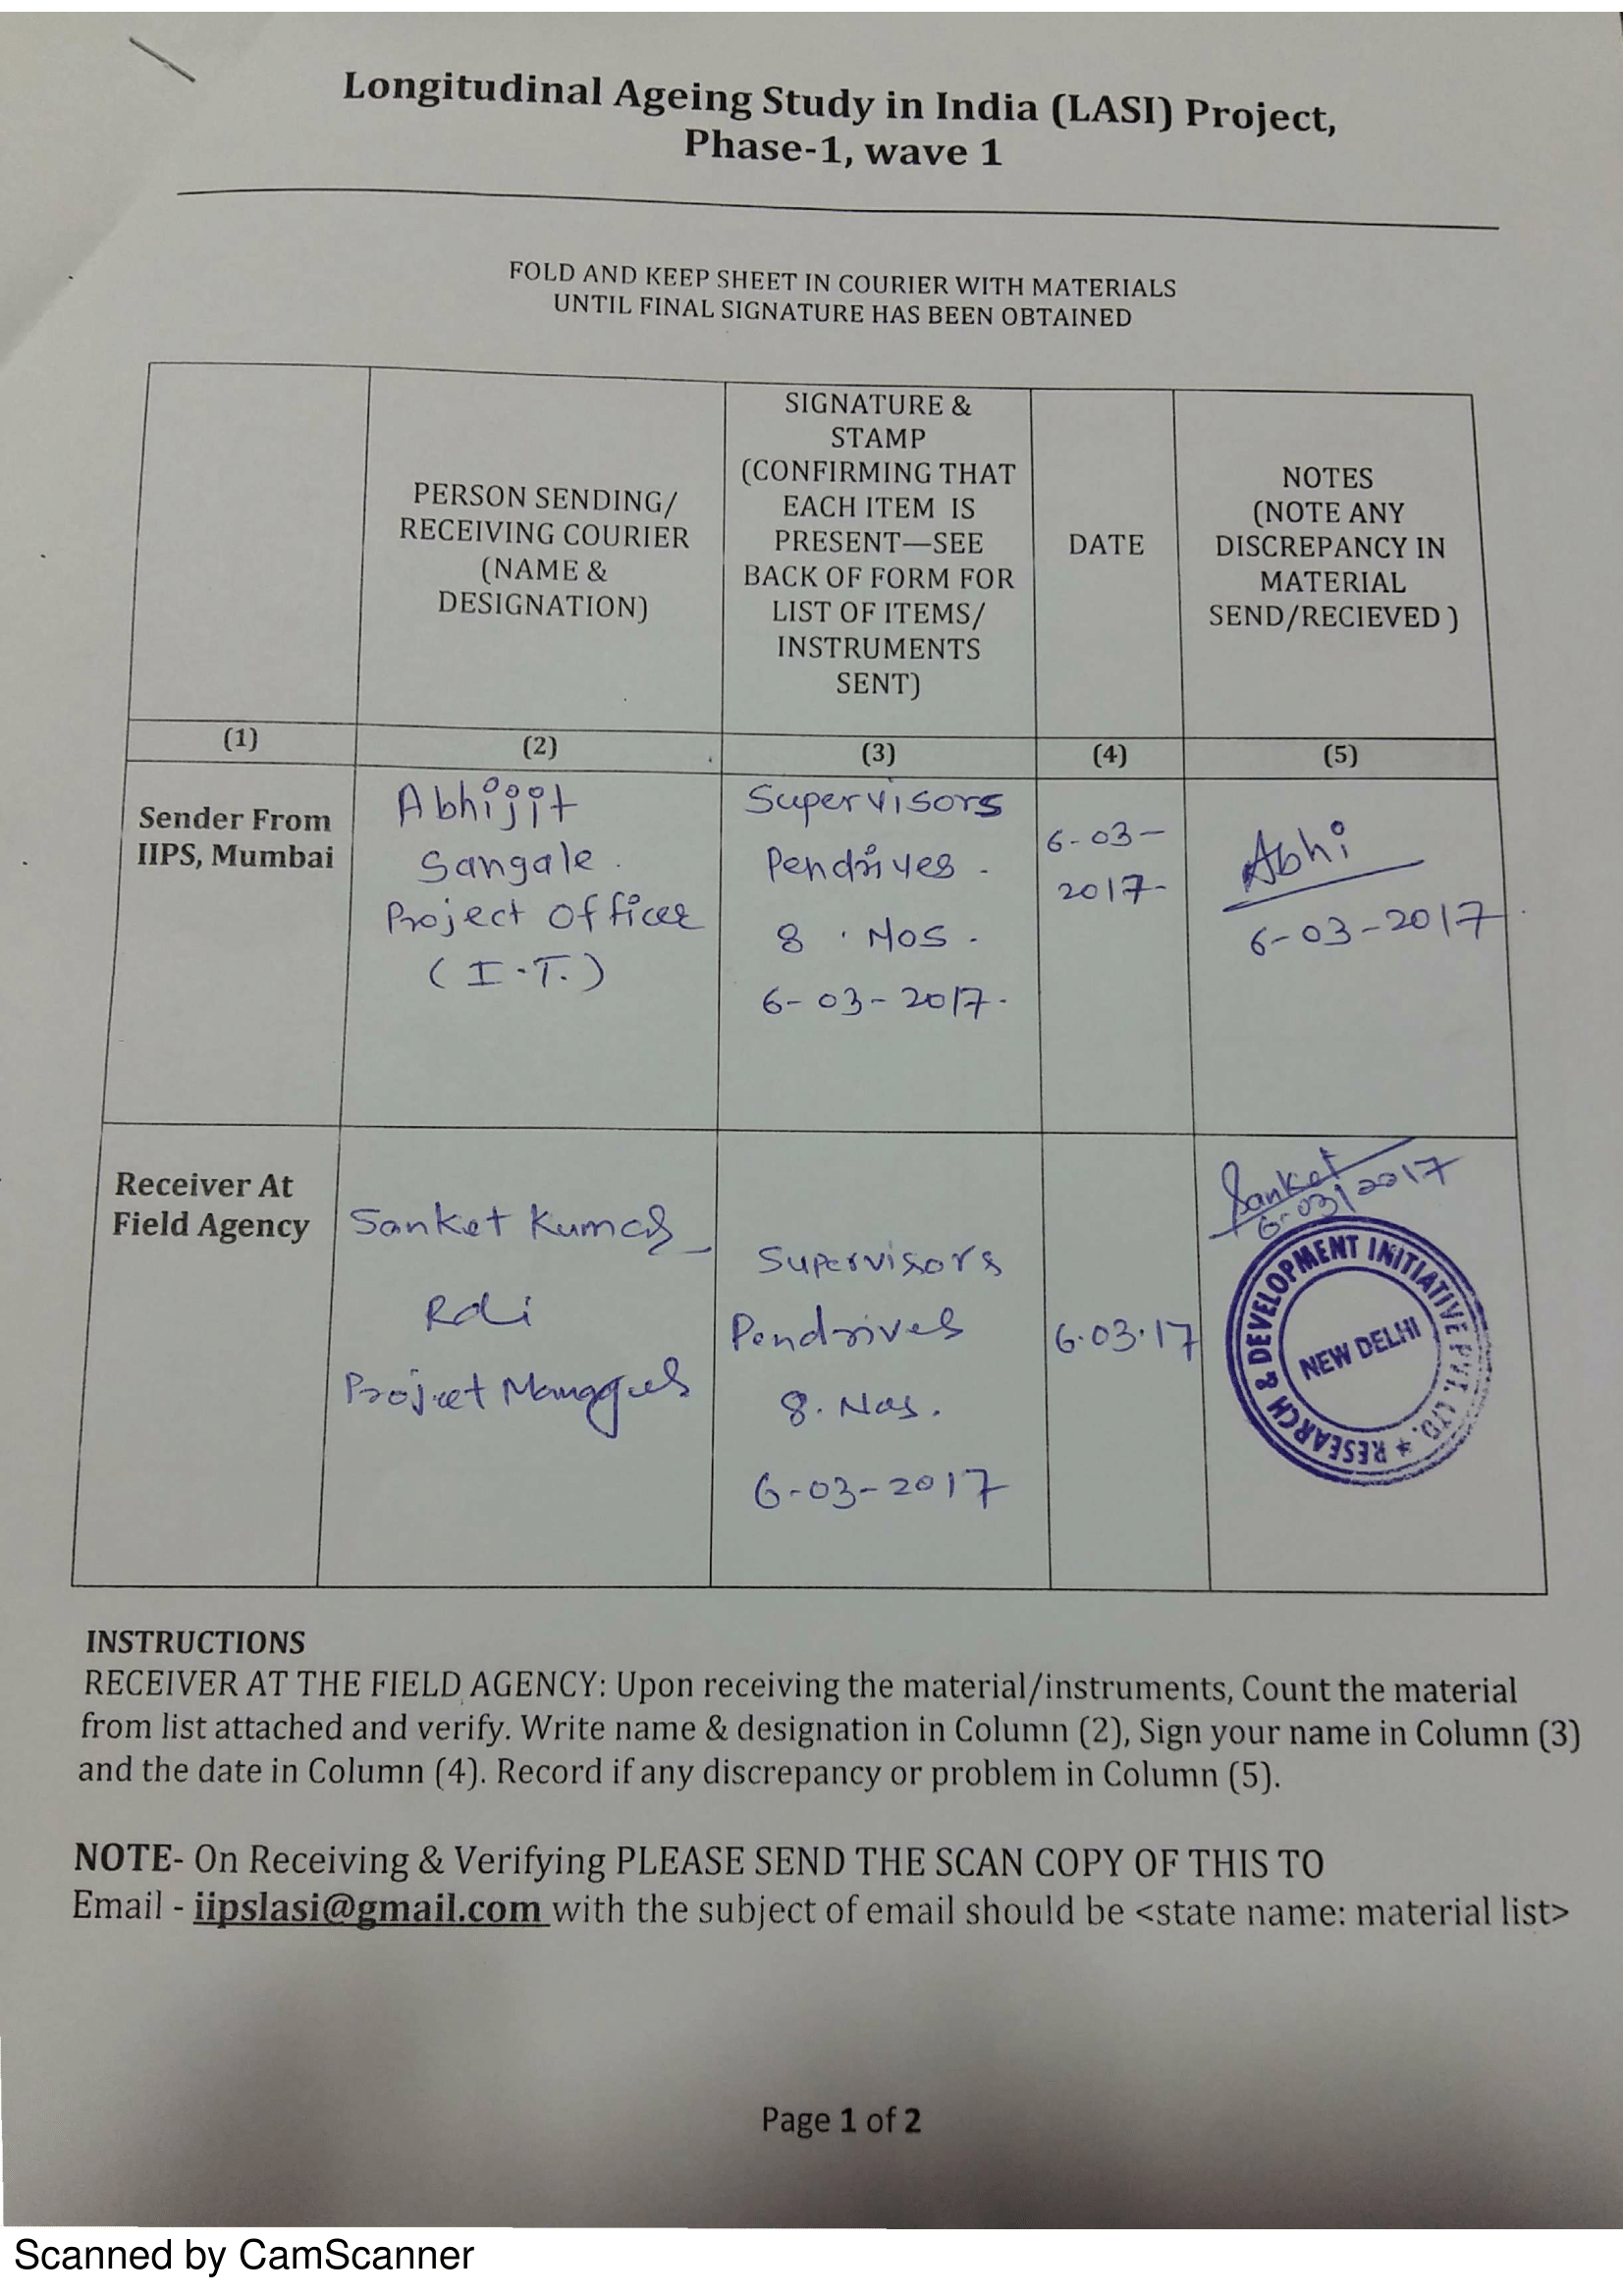 Longitudinal Ageing Study in India (LASI) Project,
Phase-1, wave 1
FOLD AND KEEP SHEET IN COURIER WITH MATERIALS
UNTIL FINAL SIGNATURE HAS BEEN OBTAINED
PERSON SENDING/
RECEIVING COURIER
(NAME &
DESIGNATION)
SIGNATURE &
STAMP
(CONFIRMING THAT
EACH ITEM IS
PRESENT—SEE
BACK OF FORM FOR
LIST OF ITEMS/
INSTRUMENTS
SENT)
DATE
NOTES
(NOTE ANY
DISCREPANCY IN
MATERIAL
SEND/RECIEVED )
(1)
(2)
(3)
(4)
(5)
Sender From
IIPS, Mumbai
Abhijit
Sangale.
Project Officer
(I.T.)
Supervisors
Pendrives -
8 . Nos.
6-03-2017.
6-03-
2017-
Abhi
6-03-2017
Receiver At
Field Agency
Sanket Kumar
Rdi
Project Manager
Supervisors
Pendrives
8. Nos.
6-03-2017
6.03.17
Sanket
6-03/2017
RESEARCH & DEVELOPMENT INITIATIVE PVT. LTD. *
NEW DELHI
INSTRUCTIONS
RECEIVER AT THE FIELD AGENCY: Upon receiving the material/instruments, Count the material
from list attached and verify. Write name & designation in Column (2), Sign your name in Column (3)
and the date in Column (4). Record if any discrepancy or problem in Column (5).
NOTE- On Receiving & Verifying PLEASE SEND THE SCAN COPY OF THIS TO
Email - iipslasi@gmail.com with the subject of email should be <state name: material list>
Page 1 of 2
Scanned by CamScanner